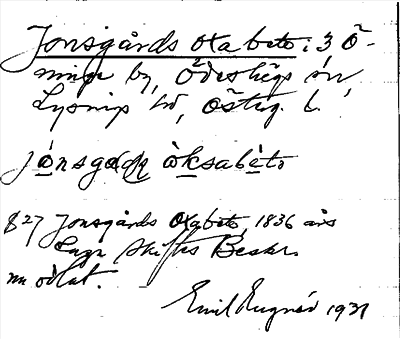 Jonsgårds oxabete i 3 Ö-
ninge by, Ödeshögs sn,
Lysings hd, Östg. l.
jònsga òksabèto
827 Jonsgårds Oxabete, 1836 års
Laga Skiftes Beskr.
nu odlat.
Emil 1931